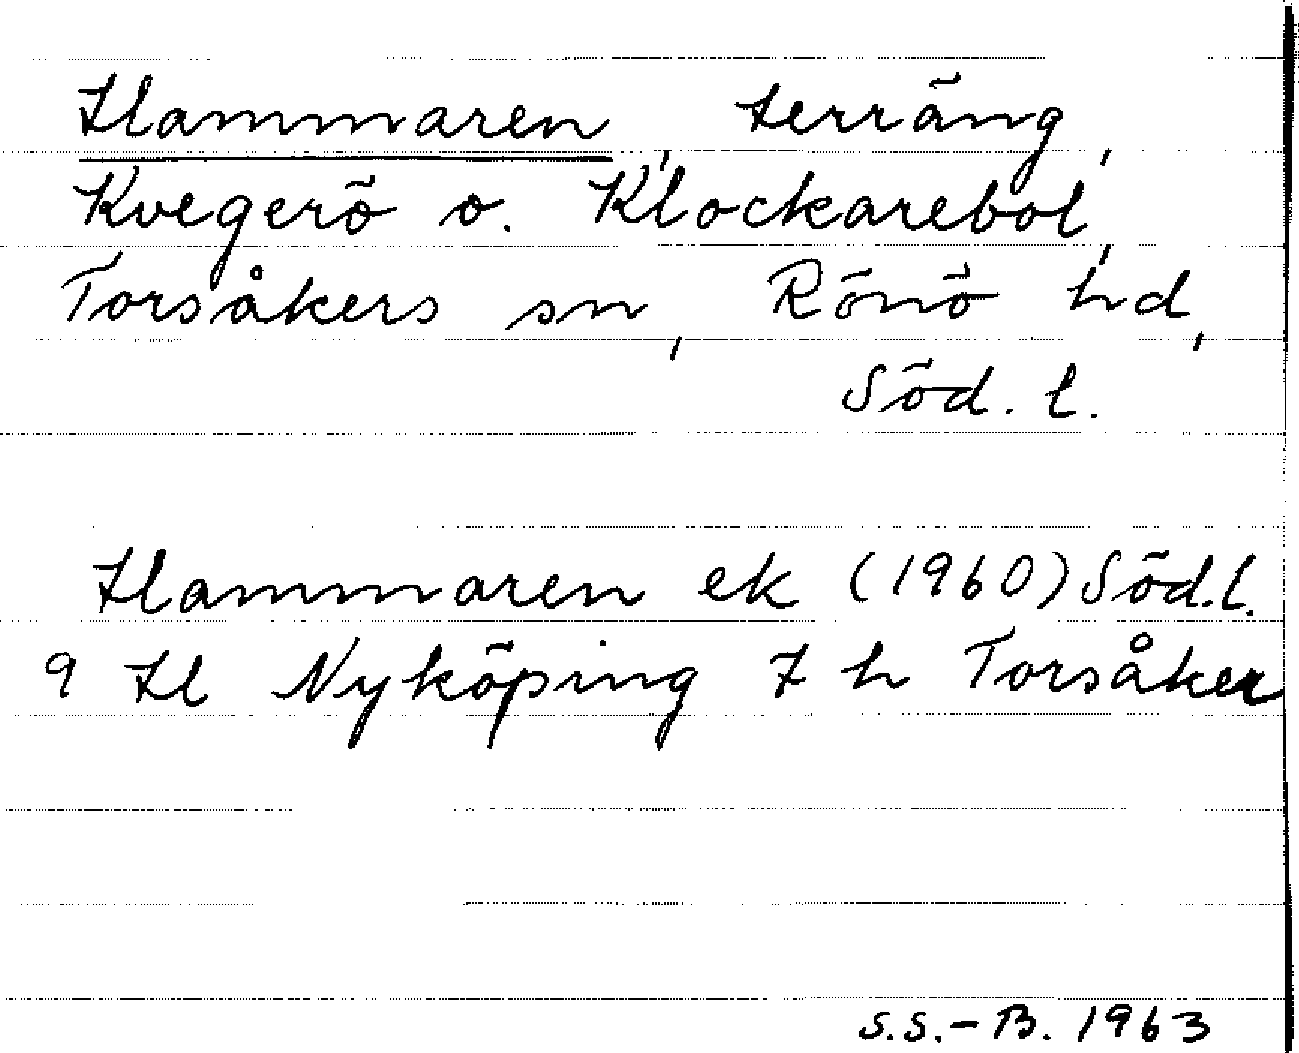 Hammaren, terräng,
Kvegerö o. Klockarebol,
Torsåkers sn, Rönö hd,
Söd. l.
Hammaren ek (1960) Söd. l.
9 H Nyköping 7 h Torsåker
S.S.-B. 1963